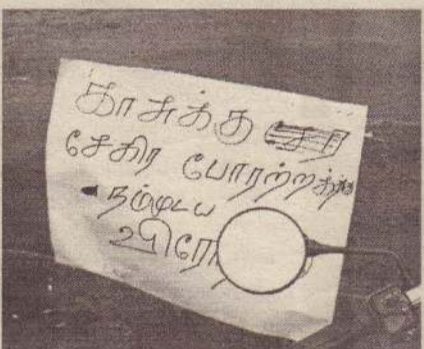 காசுக்கு
சேகிர போரற்றத்
நம்முடய
உயிரோ